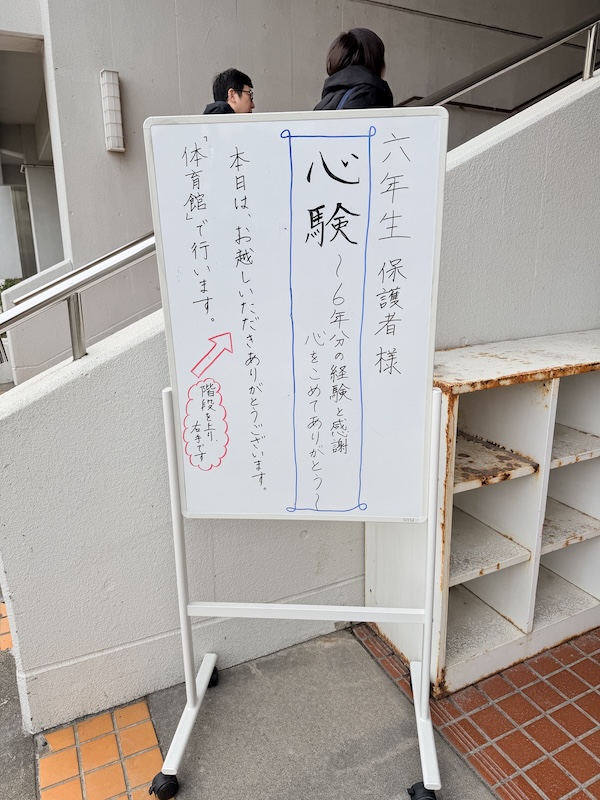 六年生 保護者様
心験
～6年分の経験と感謝
心をこめてありがとう～
本日は、お越しいただきありがとうございます。
「体育館」で行います。
階段を上り
右手です